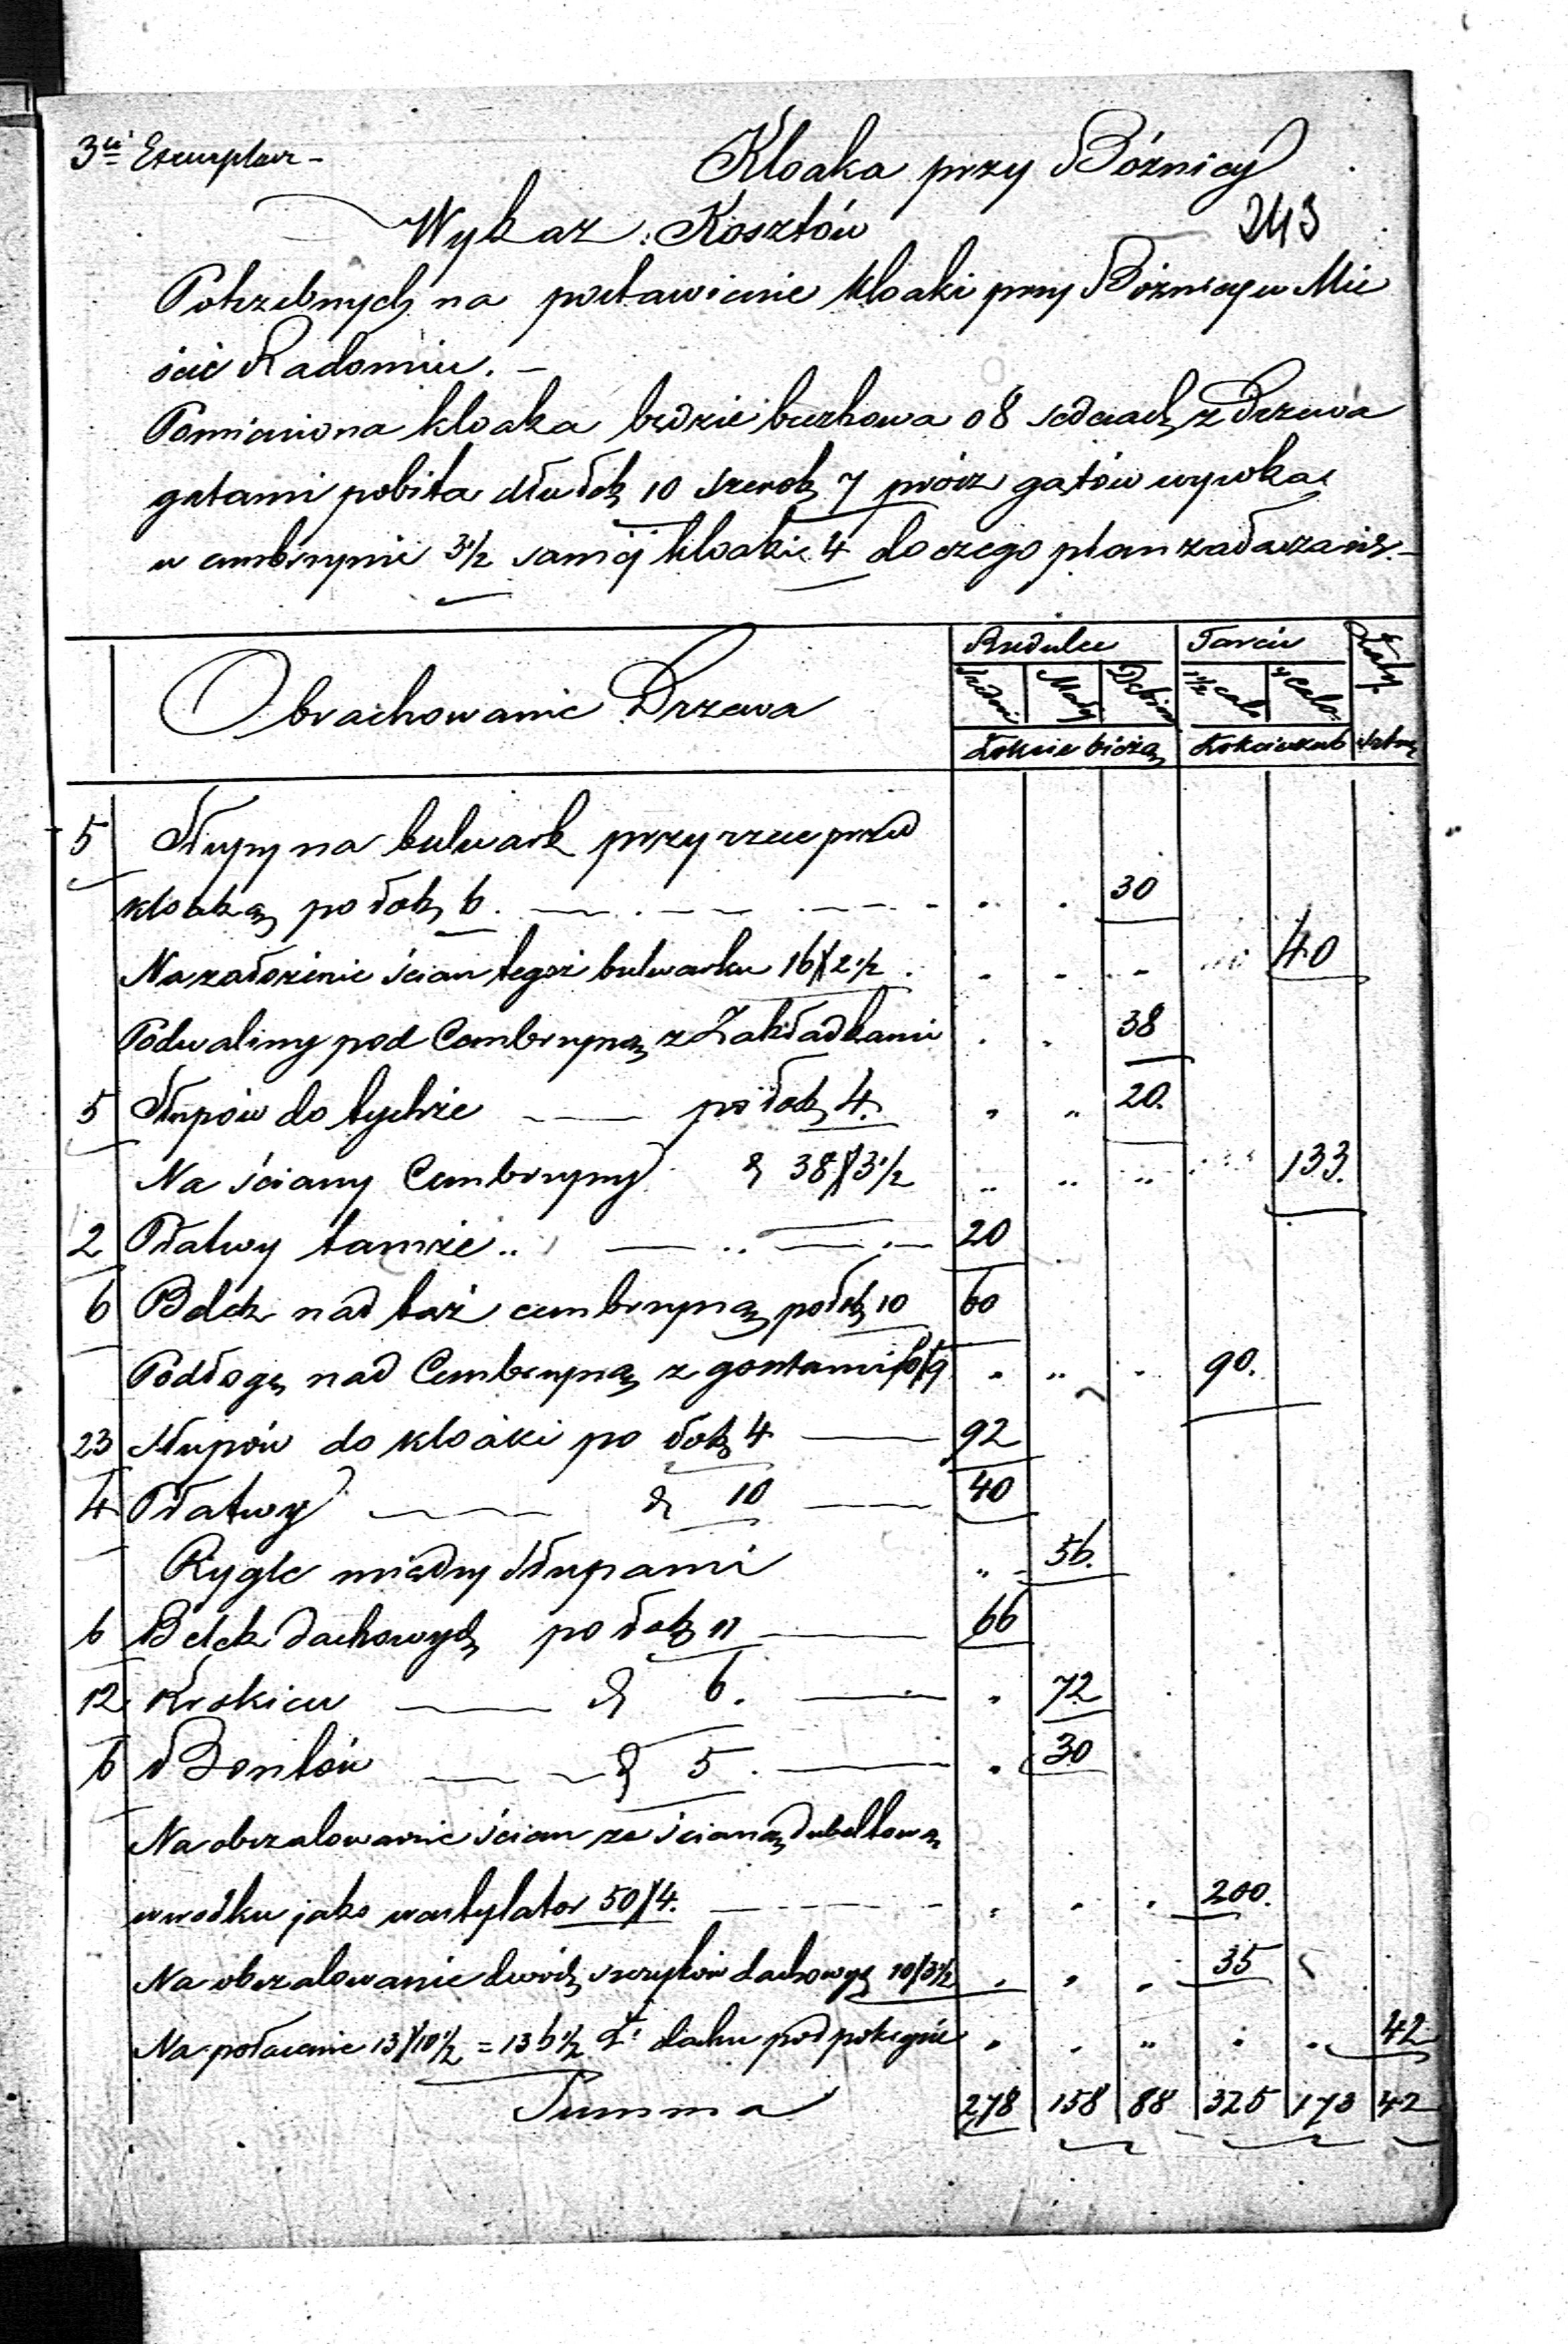 3ci Exemplarz -
Kloaka przy Bóżnicy
243
Wykaz Kosztów
Potrzebnych na postawienie kloaki przy Bóżnicy w Mie
ście Radomiu. -
Pomieniona kloaka będzie o 8 z Drzewa
gątami pobita 10 szerok 7 prócz gątów wysoka
w cembrzynie 3 1/2 samej kloaki 4 do czego plan
Obrachowanie Drzewa
Budulcu Tarcic Łaty
Średni Mały Dębian 1 1/2 calo calo
Łokcie bieżą
5 Słupy na bulwark przy rzece przed
kloaką po łok 6. 30
Na założenie ścian tegoż bulwarku 16)(2 1/2 40
Podwaliny pod Cembrzyną z Zakładkami 38
5 Słupów do tychże po łok 4. 20.
Na ściany Cembrzyny 38)(3 1/2 133.
2 Płatwy tamże 20
6 Belek nad taż cembrzyną po łok 10 60
Podłogę nad Cembrzyną z gontami 10)(9 90.
23 słupów do kloaki po łok 4 92
4 Płatwy 10 40
Rygle między słupami 56.
6 Belek dachowych po łok 11 66
12 Krokiew 6. 72
6 Bontów 5. 30
Na obszalowanie ścian ze ścianą dubeltową
w środku jako wentylator 50)(4. 200.
Na obszalowanie dwóch szczytów dachowych 10)(3 1/2 35
Na połacenie 13)(10 1/2 = 136 1/2 dachu pod pokrycie 42
Summa 278 158 88 325 173 42